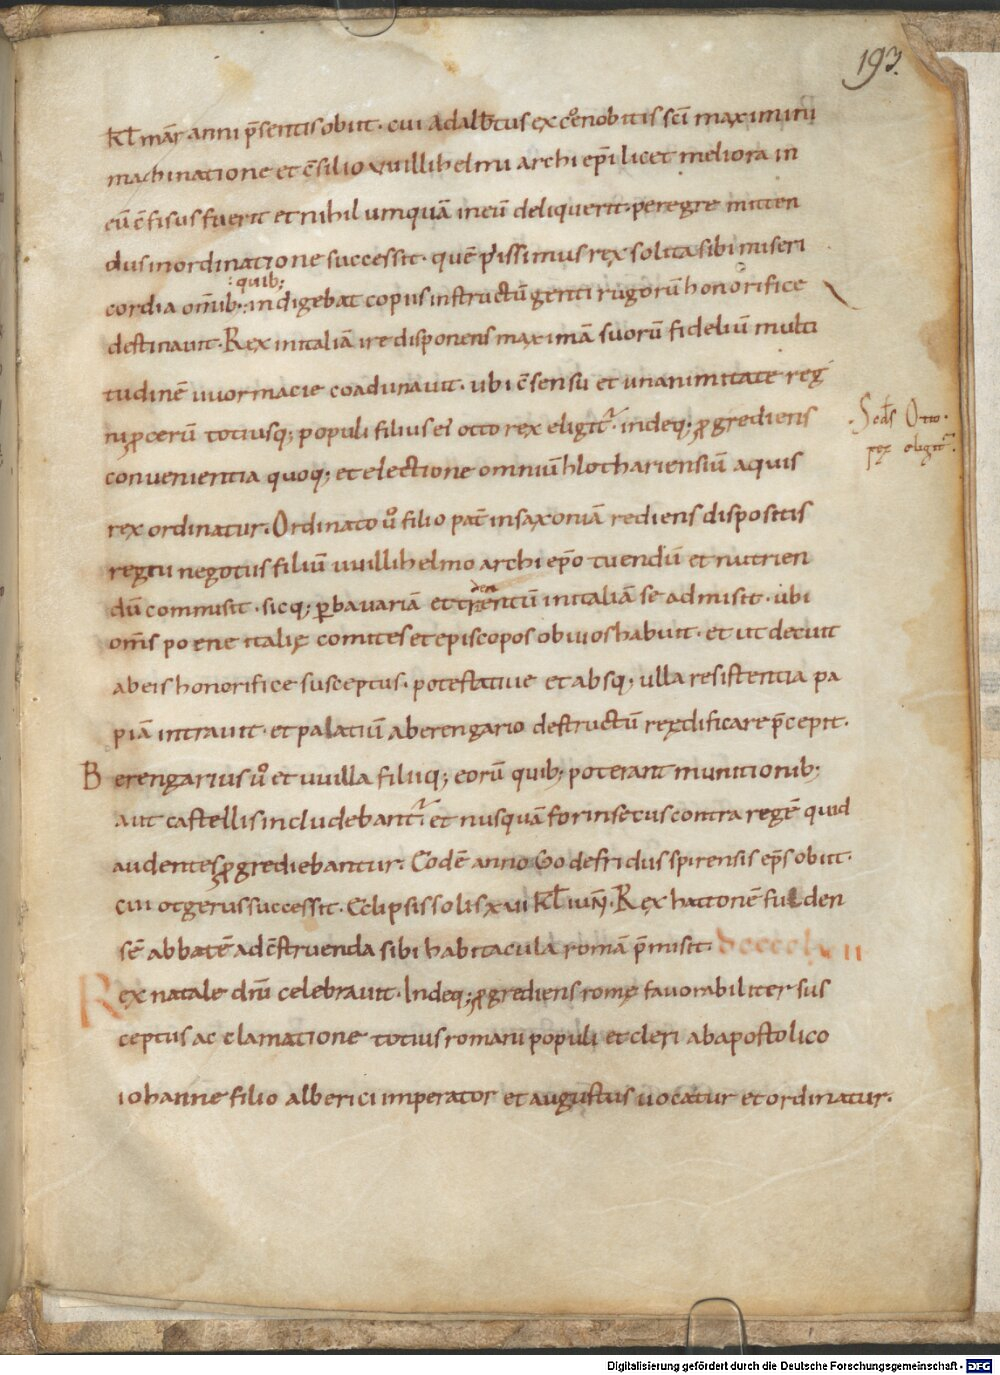 193.
kl mar̄ anni p̄sentis obiit. cui Adalb̄tus ex cęnobitis sc̄i maximini
machinatione et c̄silio vuillihelmi archi ep̄i licet meliora in
eū c̄fisus fuerit et nihil umquā in eū deliquerit. peregre mitten
dus in ordinatione successit. quē piissimus rex solita sibi miseri
quib;
cordia om̄ib; indigebat copiis instructū genti rugorū honorifice
destinauit. Rex in italiā ire disponens maximā suorū fideliū multi
tudinē uuormacie coadunauit. ubi c̄sensu et unanimitate reg
ni ꝓcerū totiusq; populi filius ei otto rex eligit̄. indeq; ꝓgrediens
Sc̄ds Otto
rex eligit̄.
convenientia quoq; et electione omniū hlothariensiū aquis
rex ordinatur. Ordinato ū filio pat̄ in saxoniā rediens dispositis
regni negotiis filiū uuillihelmo archi ep̄o tuendū et nutrien
den
dū commisit. sicq; ꝑ bauariā et trientū in italiā se admisit. ubi
om̄s poene italię comites et episcopos obuios habuit. et ut decuit
ab eis honorifice susceptus. potestatiue et absq; ulla resistentia pa
piā intrauit. et palatiū a berengario destructū reędificare p̄cepit.
Berengarius ū et uuilla filiiq; eorū quib; poterant munitionib;
aut castellis includebant̄. et nusquā forinsecus contra regē quid
audentes ꝓgrediebantur. Eodē anno Godefridus spirensis ep̄s obiit.
cui otgerus successit. Eclipsis solis xvi kl iun̄. Rex hattonē fulden
sē abbatē ad c̄struenda sibi habitacula romā p̄misit. dcccclxii
Rex natale dn̄i celebrauit. Indeq; ꝓgrediens romę fauorabiliter sus
ceptus acclamatione totius romani populi et cleri ab apostolico
iohanne filio alberici imperator et augustus uocatur et ordinatur.
Digitalisierung gefördert durch die Deutsche Forschungsgemeinschaft - DFG